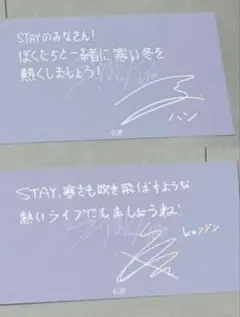 STAYのみなさん!
ぼくたちと一緒に寒い冬を
熱くしましょう!
ハン
STAY,寒さも吹き飛ばすような
熱いライブにしましょうね!
ヒョンジン